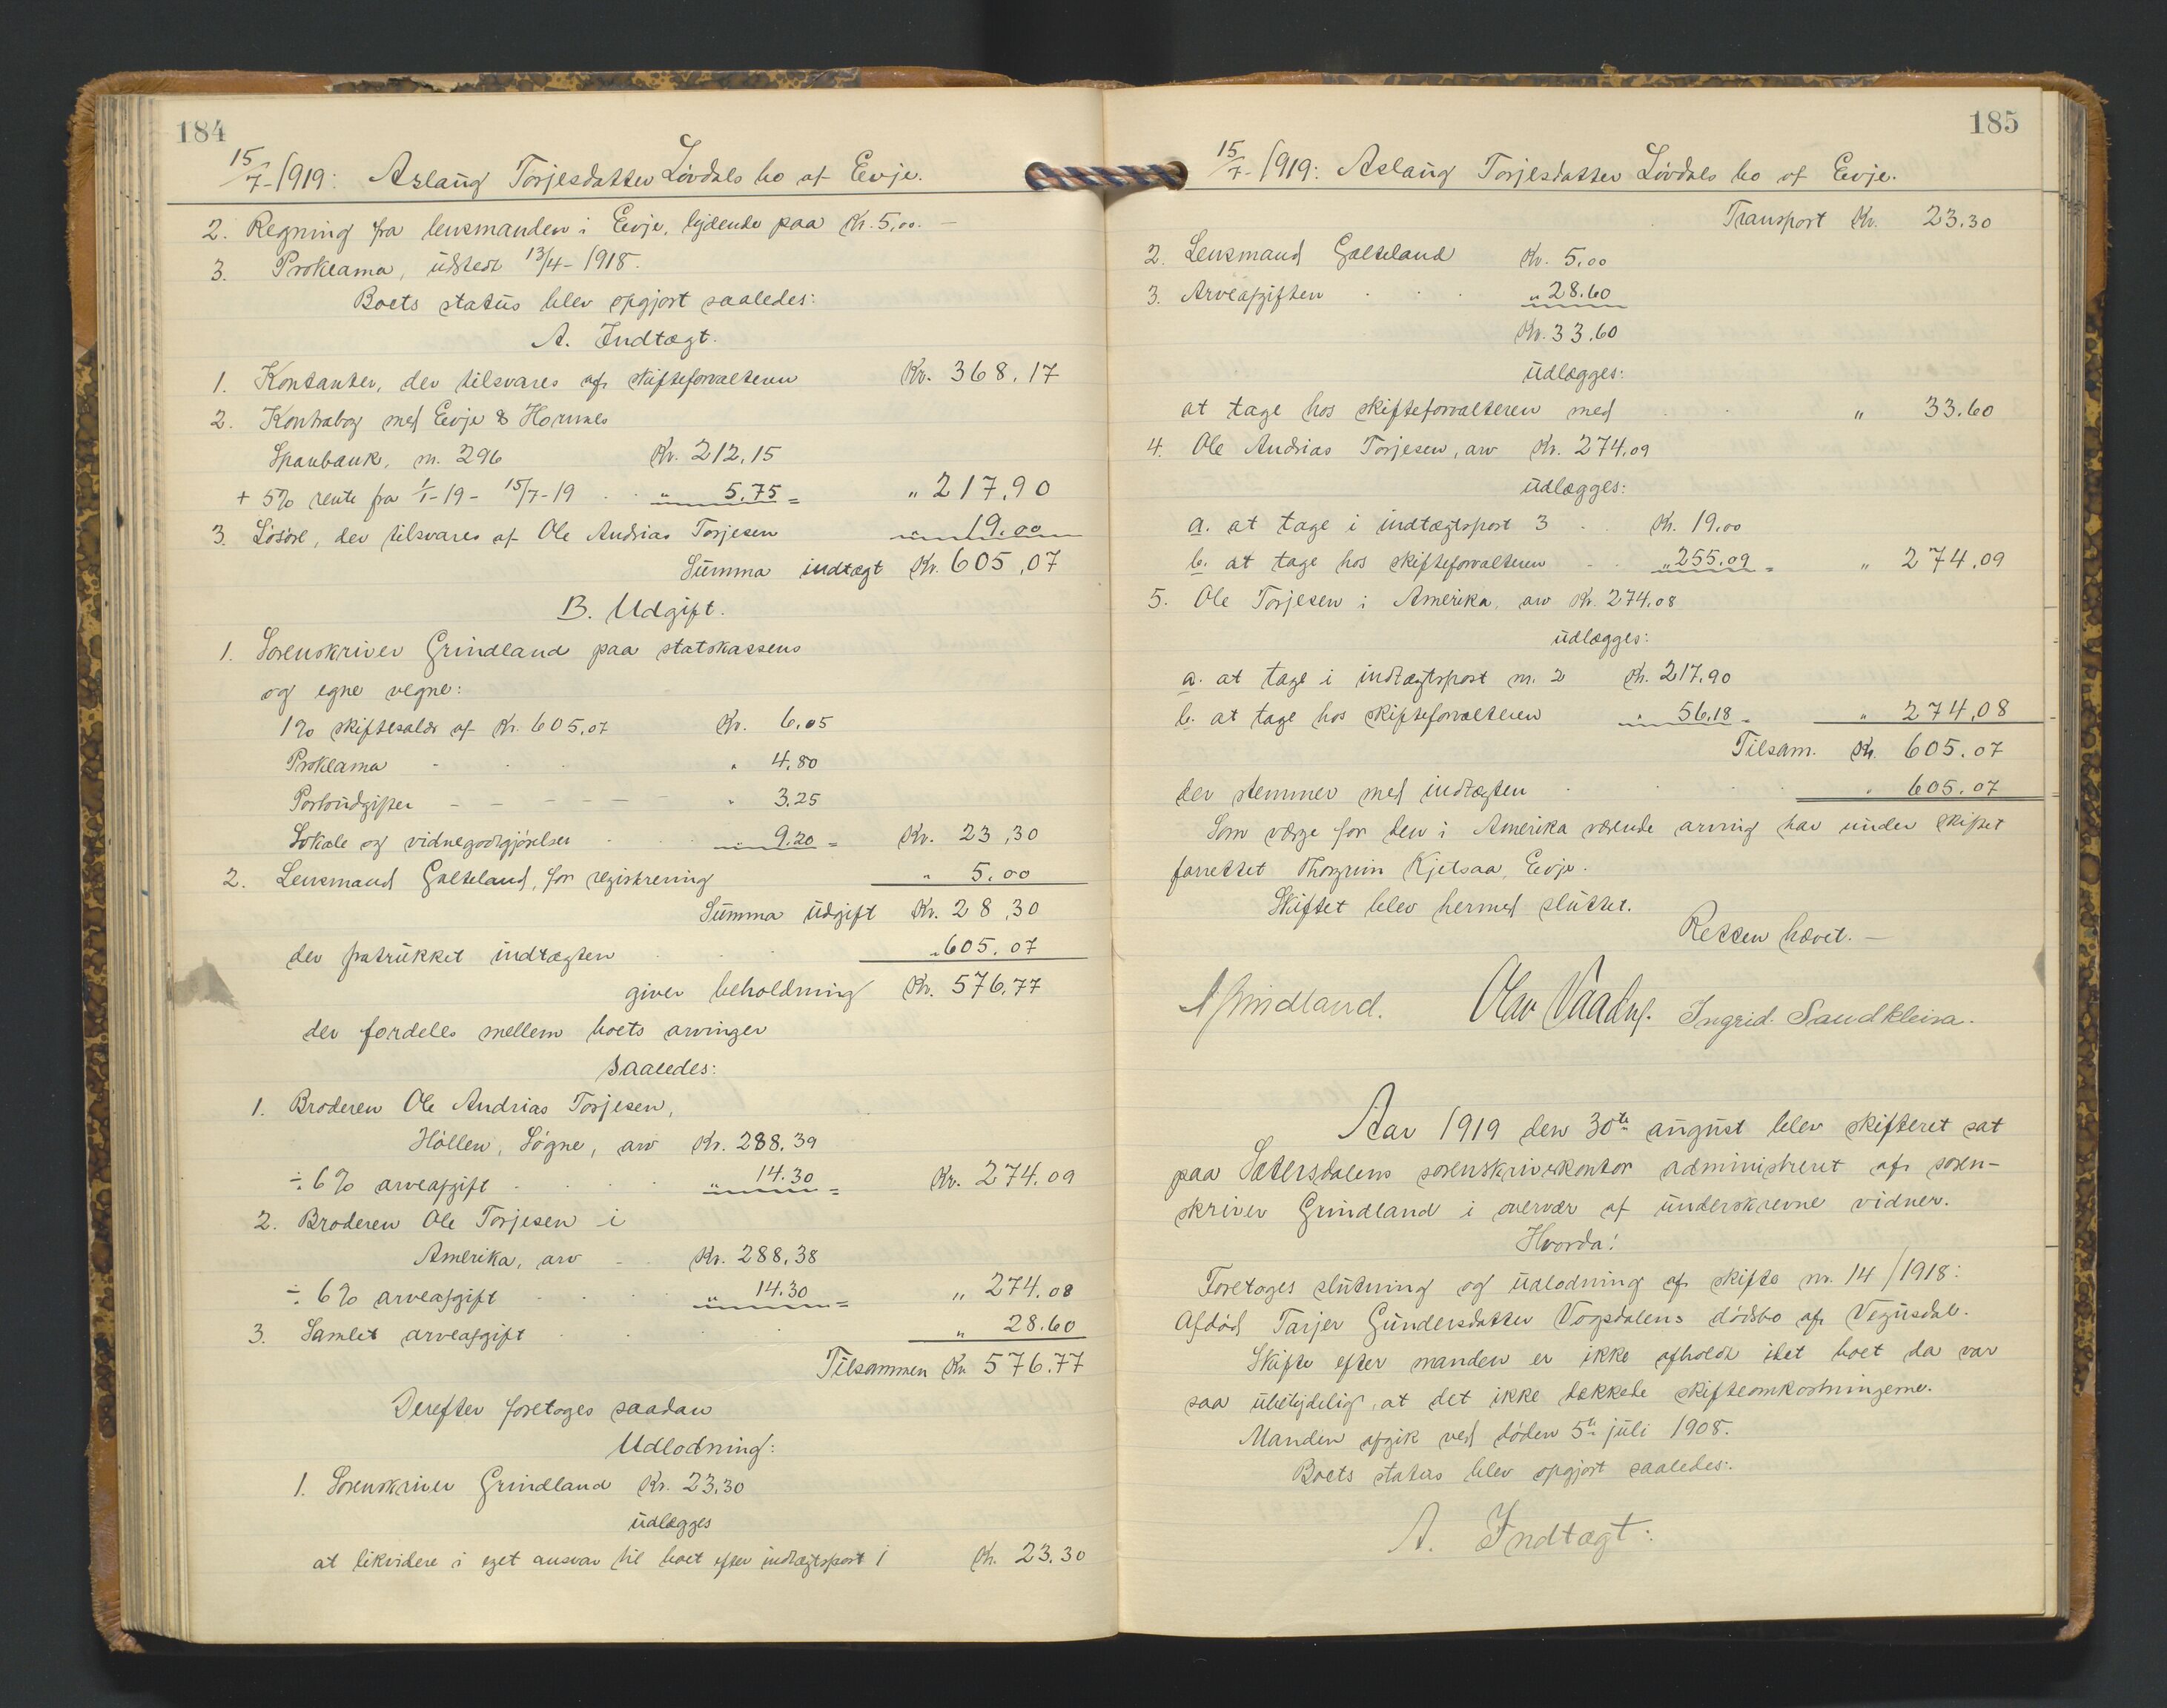 184
15/7-1919: Aslaug Torjesdatter Lövdals bo af Evje.
2. Regning fra lensmanden i Evje, lydende paa Kr. 5,00. —
3. Proklama, udstedt 13/4-1918.
Boets status blev opgjort saaledes:
A. Indtægt.
1. Kontanter, der tilsvares af skifteforvalteren Kr. 368,17
2. Kontrabog med Evje & Hornnes
Sparebank, nr. 296 Kr. 212,15
+ 5% rente fra 1/1-19 - 15/7-19 . . " 5,75 = " 217,90
3. Lösöre, der tilsvares af Ole Andrias Torjesen " 19.00
Summa indtægt Kr. 605,07
B. Udgift.
1. Sorenskriver Grindland paa statskassens
og egne vegne:
1% skiftesalær af Kr. 605,07 Kr. 6,05
Proklama - . . " 4,80
Portoudgifter - - - - - - " 3.25
Lokale og vidnegodtgjörelser . . " 9.20 = Kr. 23,30
2. Lensmand Galteland, for registrering " 5.00
Summa udgift Kr. 28,30
der fratrukket indtægten . . " 605.07
giver beholdning Kr. 576,77
der fordeles mellem boets arvinger
saaledes:
1. Broderen Ole Andrias Torjesen,
Höllen, Sögne, arv Kr. 288.39
÷ 6% arveafgift . . . . " 14.30 = Kr. 274.09
2. Broderen Ole Torjesen i
Amerika, arv - . Kr. 288,38
÷ 6% arveafgift . . . . " 14.30 = " 274.08
3. Samlet arveafgift . . . . " 28.60
Tilsammen Kr. 576.77
Derefter foretoges saadan
Udlodning:
1. Sorenskriver Grindland Kr. 23.30
udlægges
at likvidere i eget ansvar til boet efter indtægtspost 1 Kr. 23.30
185
15/7-1919: Aslaug Torjesdatter Lövdals bo af Evje.
Transport Kr. 23.30
2. Lensmand Galteland Kr. 5,00
3. Arveafgiften . . . " 28.60
Kr. 33.60
udlægges:
at tage hos skifteforvalteren med . . " 33.60
4. Ole Andrias Torjesen, arv Kr. 274,09
udlægges:
a. at tage i indtægtspost 3 . . Kr. 19,00
b. at tage hos skifteforvalteren - . " 255.09 = " 274,09
5. Ole Torjesen i Amerika, arv Kr. 274.08
udlægges:
a. at tage i indtægtspost nr. 2 Kr. 217.90
b. at tage hos skifteforvalteren " 56,18 = " 274,08
Tilsam. Kr. 605.07
der stemmer med indtægten . . . " 605.07
Som værge for den i Amerika værende arving har under skiftet
forrettet Thorgrim Kjetsaa, Evje.
Skiftet blev hermed sluttet.
Retten hævet. —
Grindland. Olav Ingrid Sandkleiva.
Aar 1919 den 30te august blev skifteret sat
paa Sætersdalens sorenskriverkontor administreret af soren-
skriver Grindland i overvær af underskrevne vidner.
Hvorda!
Foretoges slutning og udlodning af skifte nr. 14/1918:
Afdöd Tarjer Gundersdatter Vogsdalens dödsbo af Vegusdal.
Skifte efter manden er ikke afholdt idet boet da var
saa ubetydelig, at det ikke dækkede skifteomkostningerne.
Manden afgik ved döden 5te juli 1908.
Boets status blev opgjort saaledes:
A. Indtægt: